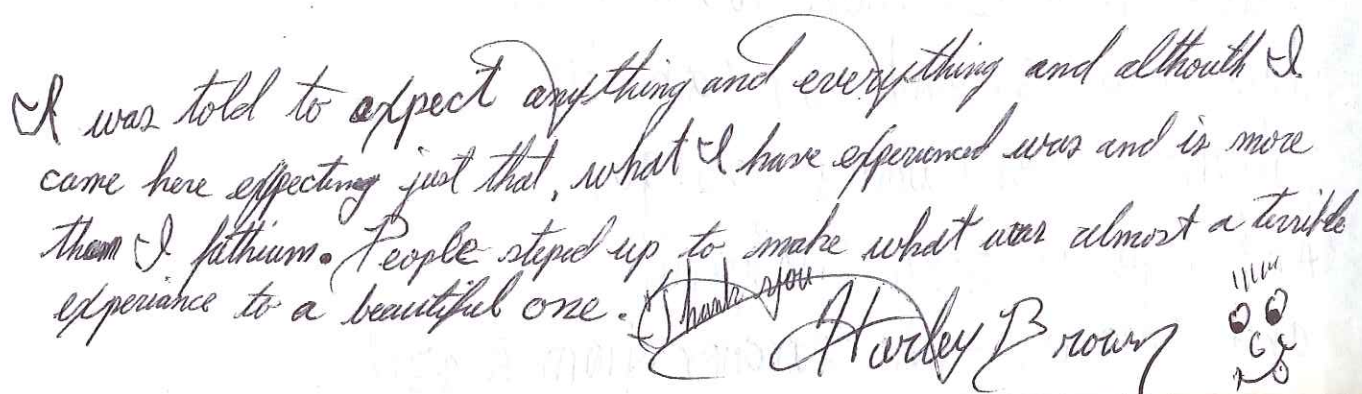 I was told to expect anything and everything and althouth I
came here expecting just that, what I have experienced was and is more
than I fathium. People steped up to make what was almost a terrible
experiance to a beautiful one. Thank you
Harley Brown